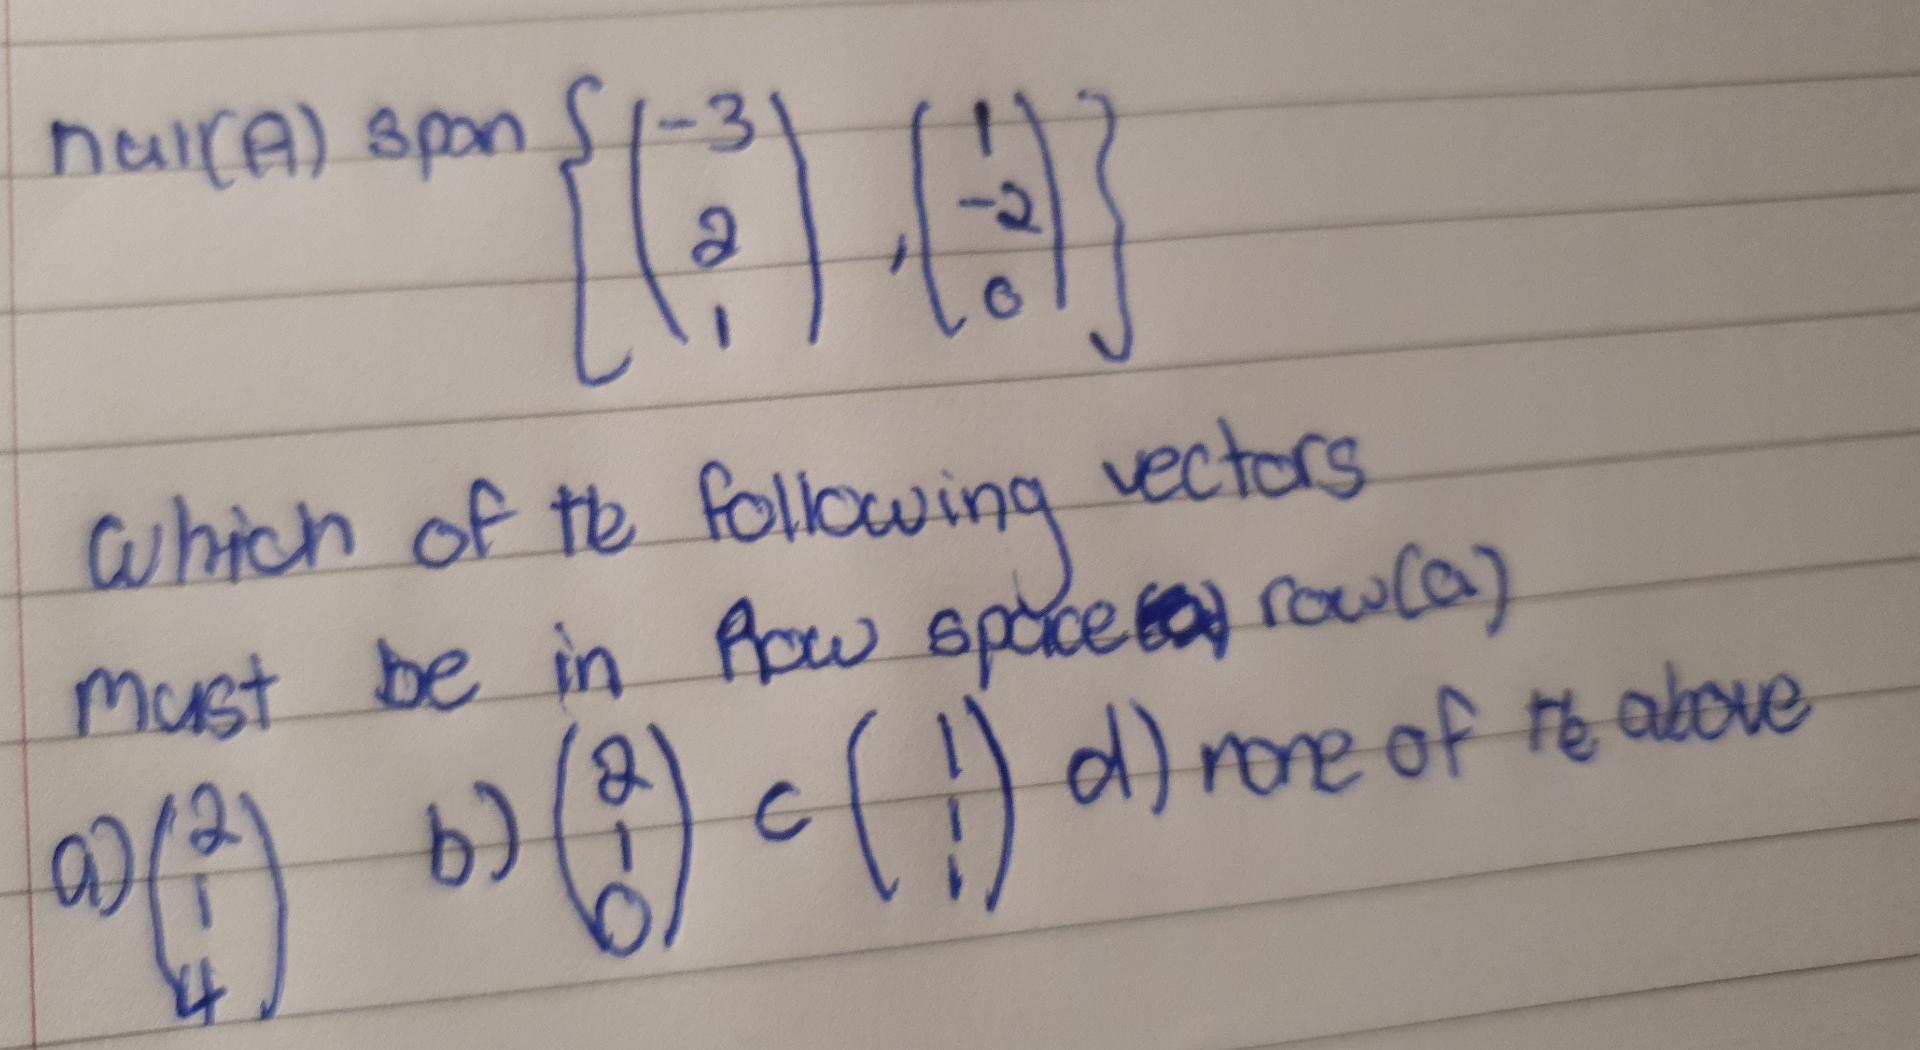 nul(A) span { (-3 2 1) , (1 -2 0) }
Which of the following vectors
must be in Row space row(a)
a) (2 1 4) b) (2 1 0) c (1 1 1) d) none of the above